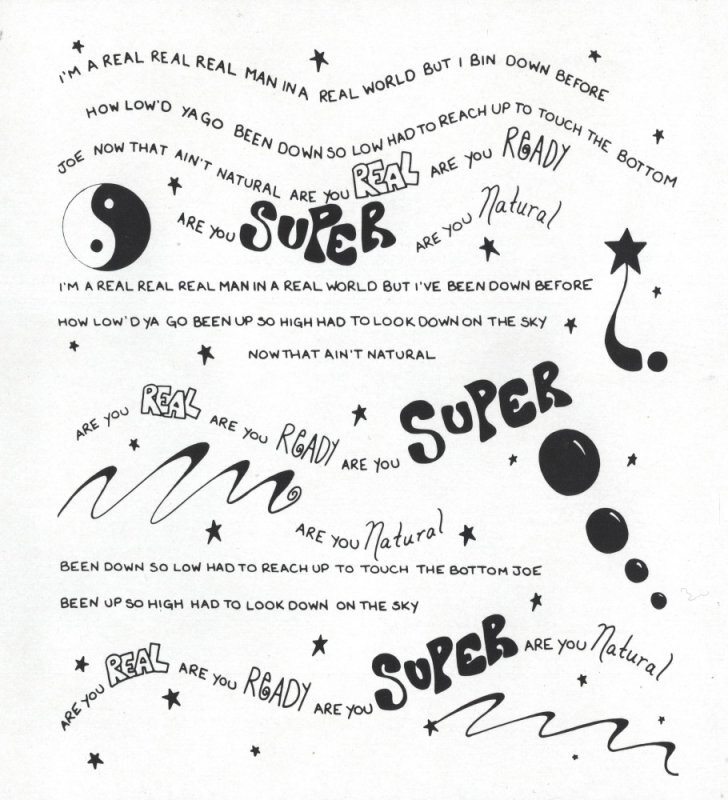 I'M A REAL REAL REAL MAN IN A REAL WORLD BUT I BIN DOWN BEFORE
HOW LOW'D YA GO BEEN DOWN SO LOW HAD TO REACH UP TO TOUCH THE BOTTOM
JOE NOW THAT AIN'T NATURAL ARE YOU REAL ARE YOU READY
ARE YOU SUPER ARE YOU Natural
I'M A REAL REAL REAL MAN IN A REAL WORLD BUT I'VE BEEN DOWN BEFORE
HOW LOW'D YA GO BEEN UP SO HIGH HAD TO LOOK DOWN ON THE SKY
NOW THAT AIN'T NATURAL
ARE YOU REAL ARE YOU READY ARE YOU SUPER
ARE YOU Natural
BEEN DOWN SO LOW HAD TO REACH UP TO TOUCH THE BOTTOM JOE
BEEN UP SO HIGH HAD TO LOOK DOWN ON THE SKY
ARE YOU REAL ARE YOU READY ARE YOU SUPER ARE YOU Natural